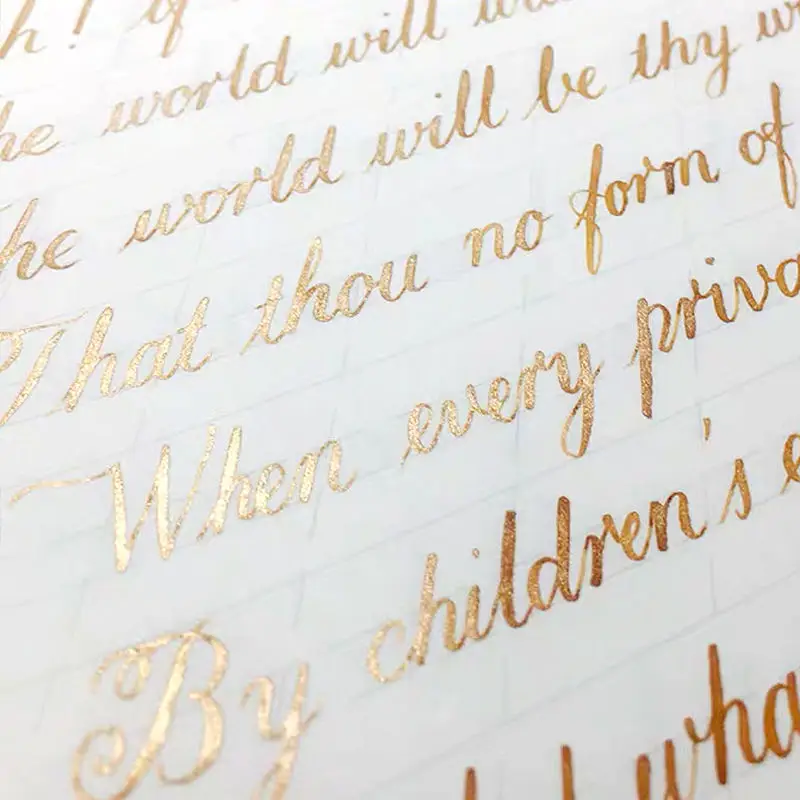 h! if
he world will
The world will be thy
That thou no form of
When every priva
By children's e
wha